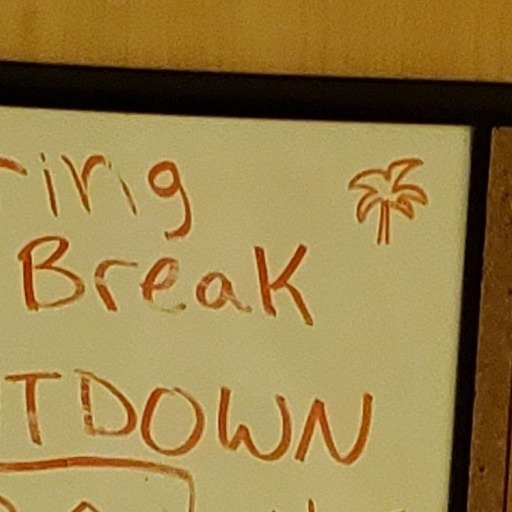 ring
Break
TDOWN